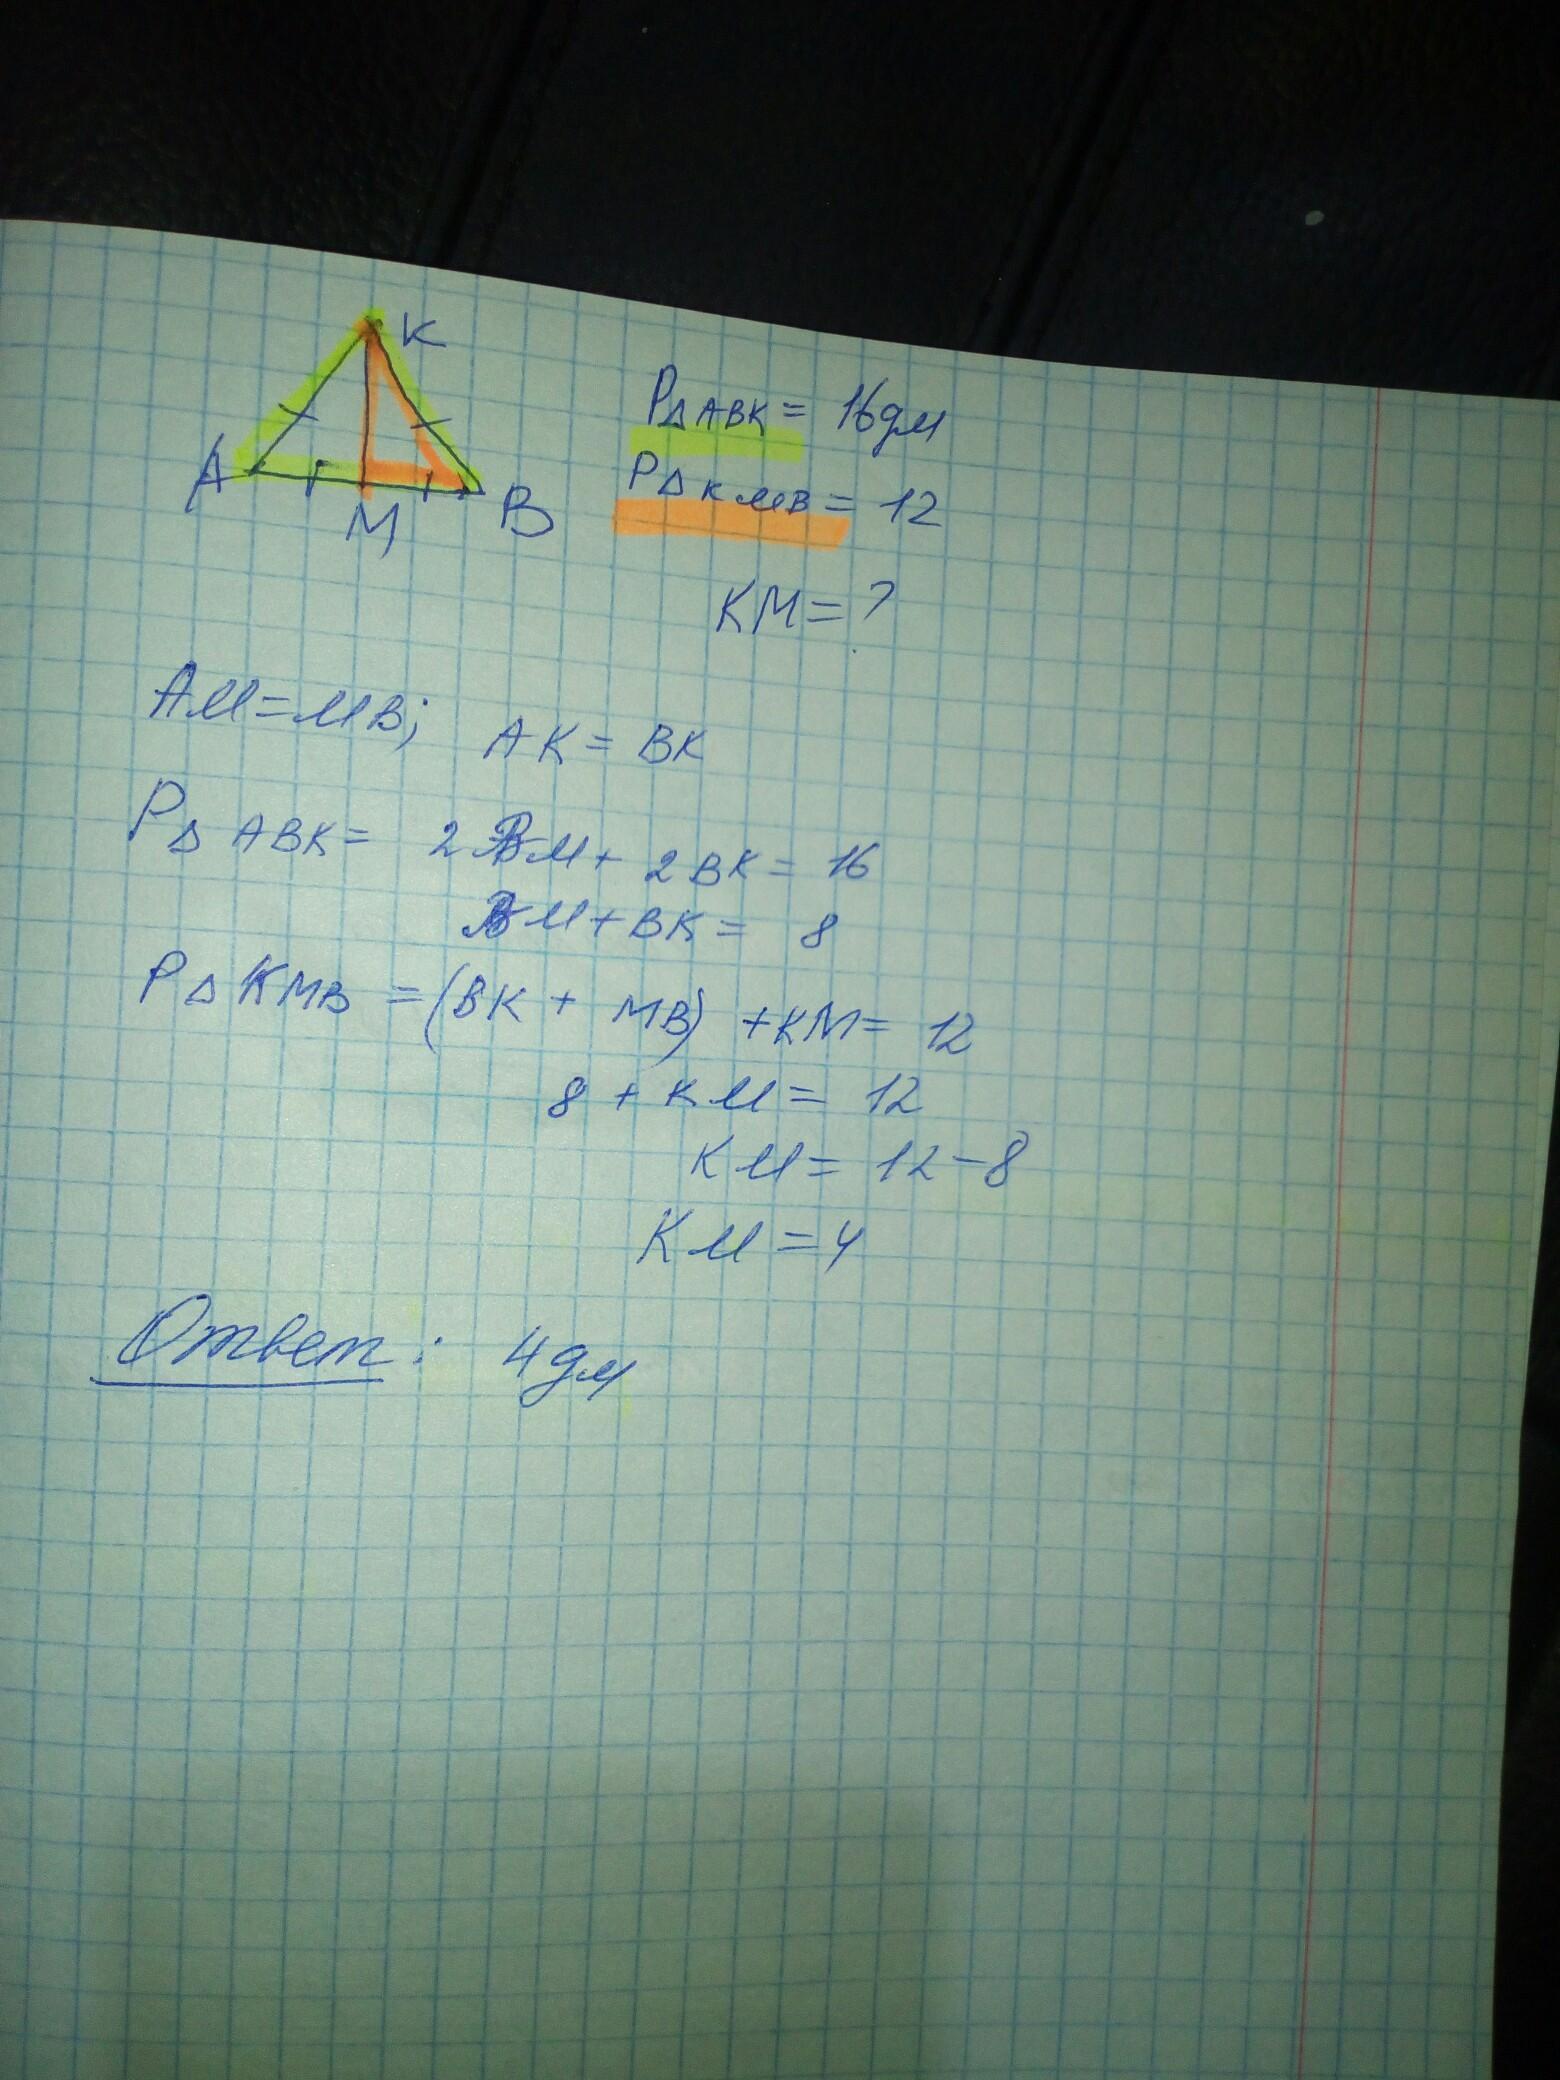 K
A M B
P△ABK = 16дм
P△KMB = 12
KM = ?
AM = MB; AK = BK
P△ABK = 2BM + 2BK = 16
BM + BK = 8
P△KMB = (BK + MB) + KM = 12
8 + KM = 12
KM = 12 - 8
KM = 4
Ответ: 4дм